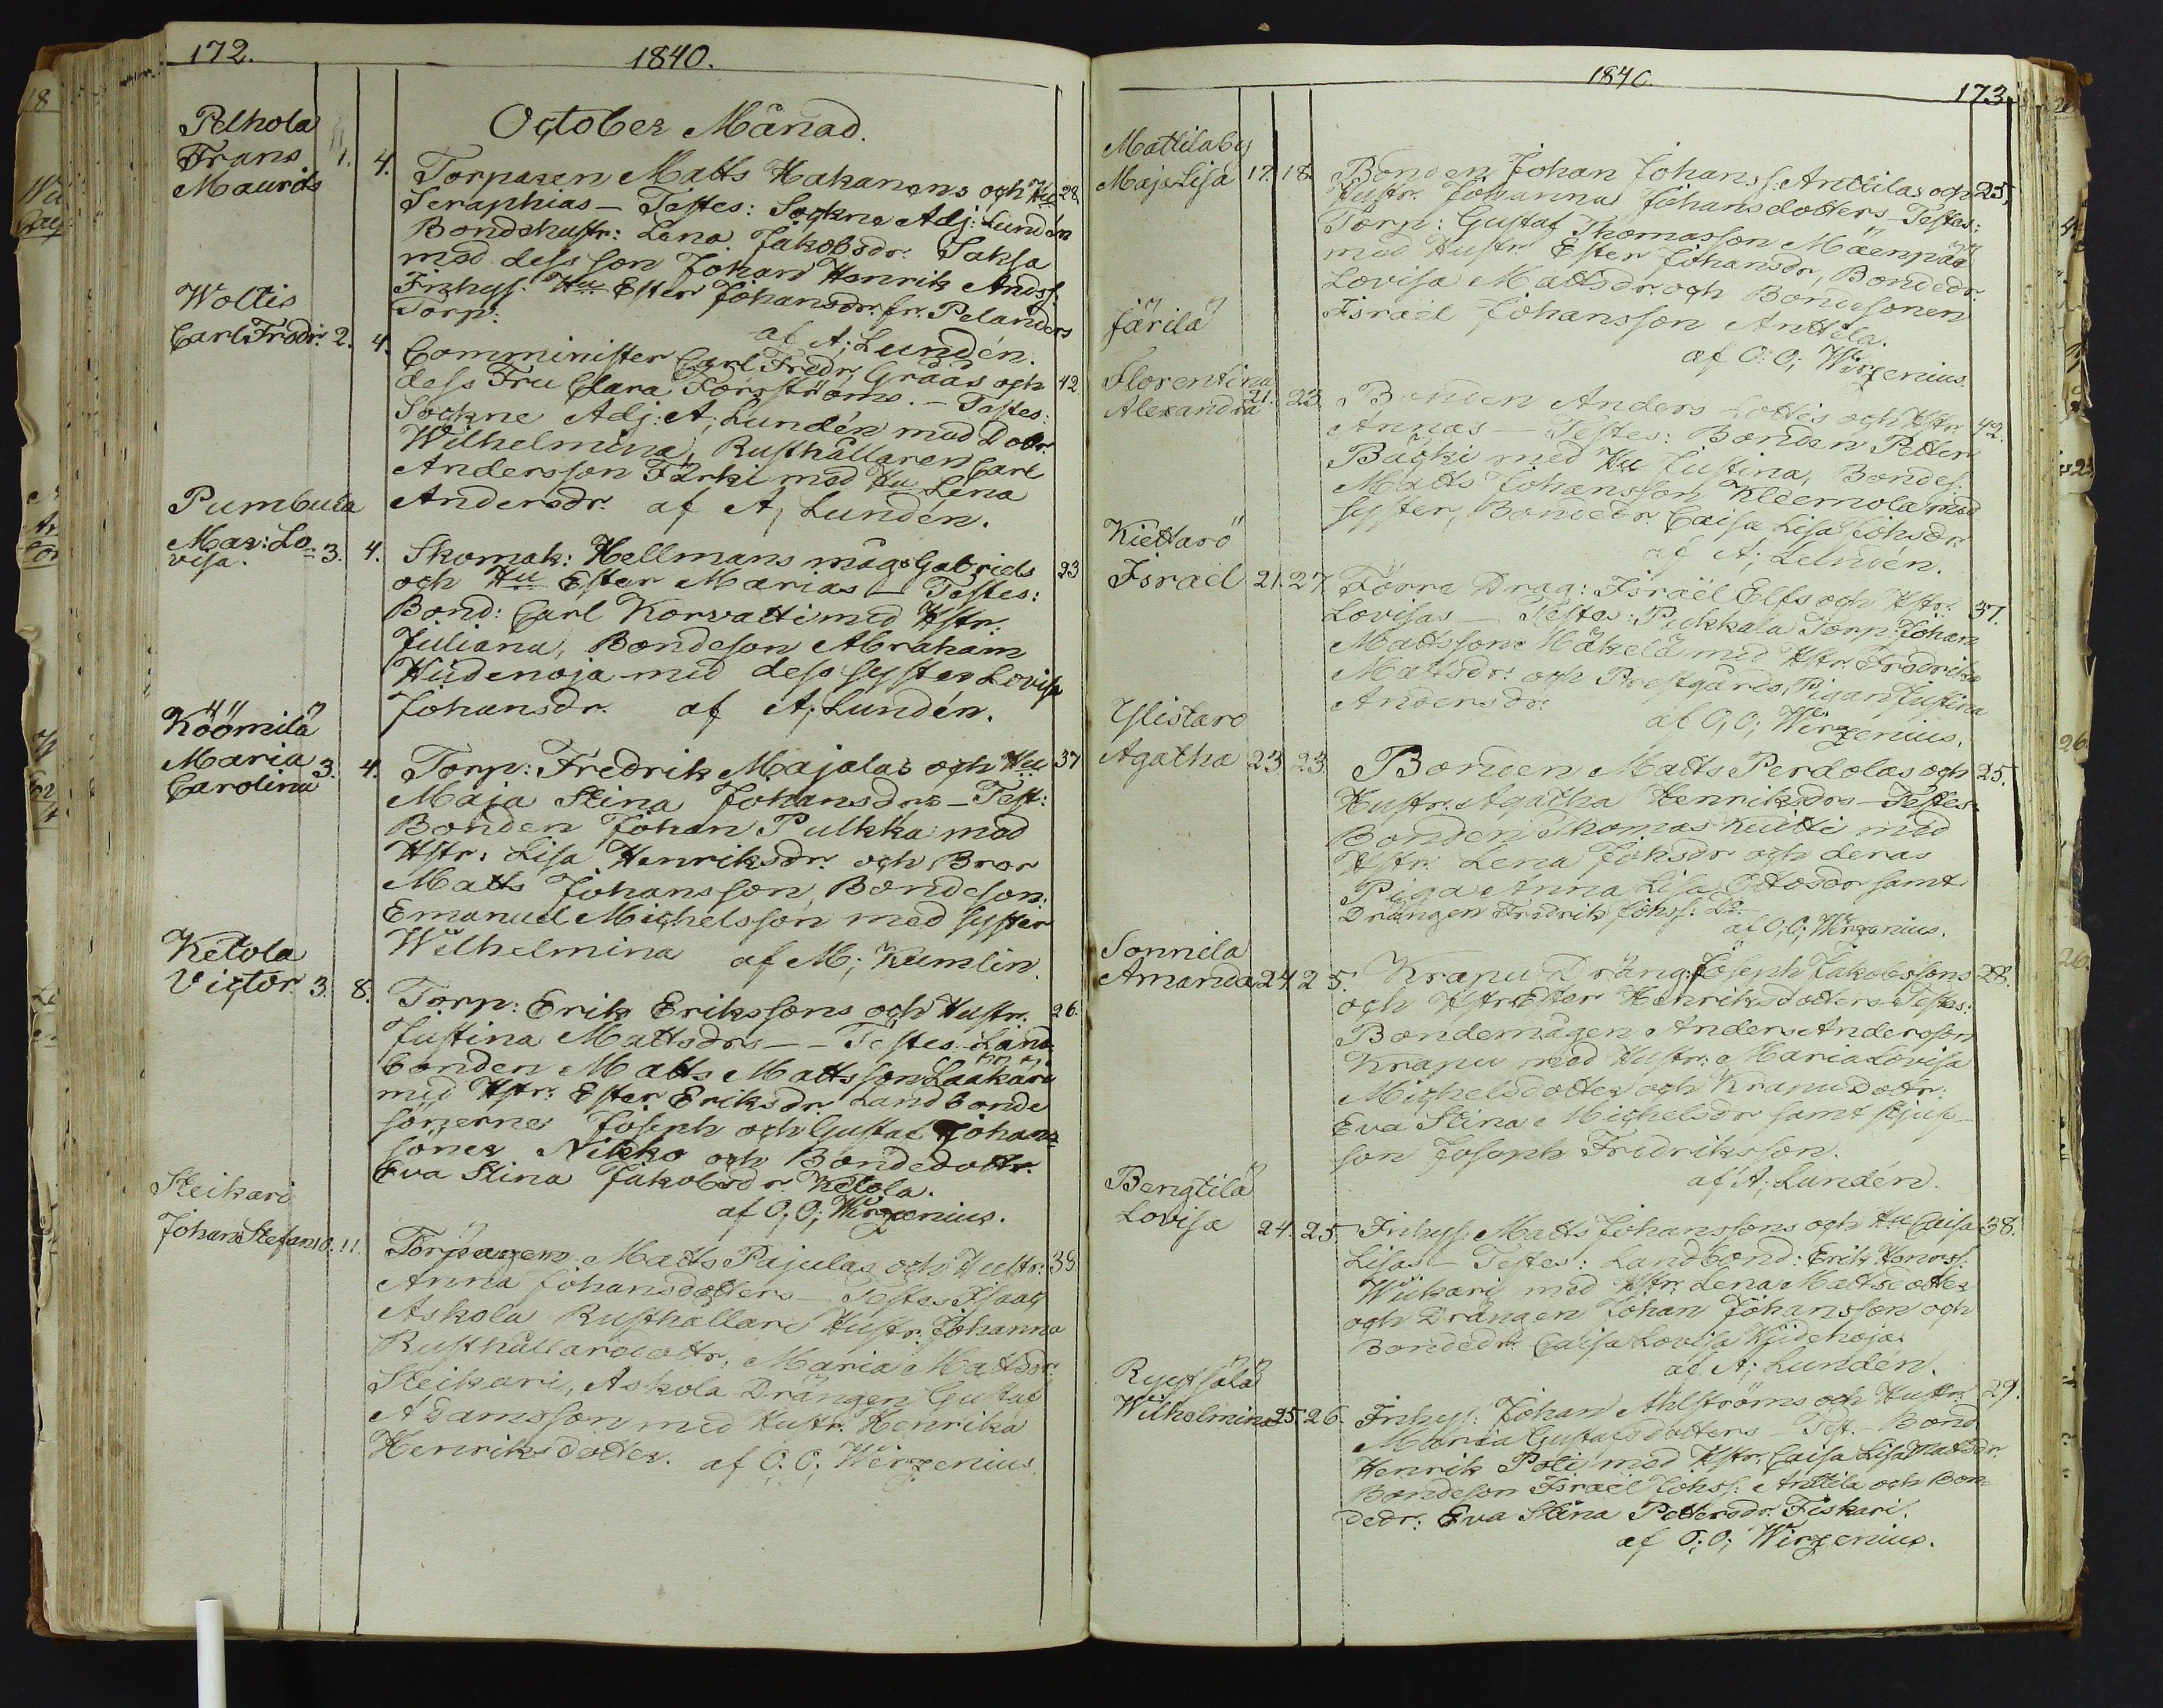 172.
1840.
October Månad.
Pelhola
Frans 1. 4.
Maurits
Torparen Matts Hakanens och Hu 28.
Seraphias – Testes: Sockne Adj: Lundén
Bondehustr: Lena Jakobsdr. Saksa
med dess son Johan Henrik Andss.
Inhys. Hu Ester Johansdr. fr. Pelanders
Torp:
af A; Lundén.
Woltis
Carl Fredr. 2. 4.
Comminister Carl Fredr. Grääs och 42
dess Fru Clara Forsströms. – Testes:
Sockne Adj: A; Lundén med Dotr.
Wilhelmina, Rusthållaren Carl
Andersson Färki med Hu Lena
Andersdr. af A; Lundén.
Pumbula
Mar: Lo=
visa. 3. 4.
Skomak: Hellmans mågs Gabriels 23
och Hu Ester Marias – Testes:
Bond: Carl Korvatti med Hstr.
Juliana, Bondeson Abraham
Hiidenoja med dess syster Lovisa
Johansdr. af A; Lundén.
Köömilä
Maria 3. 4.
Carolina
Torp: Fredrik Majalas och Hu 37
Maja Stina Johansdrs – Test:
Bonden Johan Pulkka med
Hstr: Lisa Henriksdr. och Bror
Matts Johansson, Bondeson:
Emanuel Michelsson med syster
Wilhelmina af M; Kumlin.
Ketola
Victor. 3. 8.
Torp: Erik Erikssons och Hustr. 26.
Justina Mattsdrs – – Testes: Land
bonden Matts Mattsson Laakari
med Hstr: Ester Eriksdr. Landbonde
sönerne Joseph och Gustaf Johans=
söner Nikko och Bondedottr.
Eva Stina Jakobsdr. Ketola.
af O; O; Wirzenius.
Steikari
Johan Stefan 10. 11.
Torparen Matts Pajulas och Hustr: 39
Anna Johansdotters – Testes Isaac
Askola Rusthållare Hustr. Johanna
Rusthållaredottr. Maria Mattsdr.
Steikari, Askola Drängen Gustaf
Adamsson med Hustr. Henrika
Henriksdotter. af O. O; Wirzenius
1840.
173.
Mattilaby
Maja Lisa 17. 18.
Bonden Johan Johans s: Anttilas och 25,
Hustr. Johannas Johansdotters – Testes:
Torp: Gustaf Thomasson Mäenpää
med Hustr. Ester Johansdr, Bondedr.
Lovisa Mattsdr. och Bondesonen
Israel Johansson Anttila.
af O: O; Wirzenius.
Järilä
Florentina
Alexandra 21. 23.
Bonden Anders Lottis och Hstr. 42.
Annas – Testes: Bonden Petter
Bäcki med Hu Justina, Bondes:
Matts Johansson Kleemola med
syster, Bondedr. Caisa Lisa Johsdr.
af A; Lundén.
Kiettarö
Israel 21. 27.
Förra Drag: Israël Elfs och Hstr. 37.
Lovisas – Testes: Pukkala Torp: Johan
Mattsson Mäkelä med Hstr. Fredrika
Mattsdr. och Prestgårds, Pigan Justina
Andersdr.
af O; O; Wirzenius.
Ylistaro
Agatha 23 23.
Bonden Matts Perdolas och 25.
Hustr. Agatha Henriksdrs – Testes.
Bonden Thomas Kuitti med
Hstr: Lena Johsdr och deras
Piga Anna Lisa Ottosdr samt
Drängen Fredrik Johss: Do.
af O; O; Wirzenius.
Sonnila
Amanda 24 25.
Krapu Dräng: Joseph Jakobssons 28.
och Hstr. Ester Henriksdotters Testes:
Bondemågen Anders Andersson
Krapu med Hustr: Maria Lovisa
Michelsdotter och Krapu Dotr.
Eva Stina Michelsdr samt stjuf-
son Joseph Fredriksson.
af A; Lundén.
Bengtilä
Lovisa 24. 25.
Inhys: Matts Johanssons och Hu Caisa 38.
Lisas – Testes: Landbond: Erik Henrss:
Wiikari med Hstr. Lena Mattsdotter
och Drängen Johan Johansson och
Bondedr. Caisa Lovisa Hiidenoja.
af A; Lundén.
Ruutsälä
Wilhelmina 25. 26.
Inhys: Johan Ahlströms och Hustr. 29.
Maria Gustafsdotters – Test. – Bond
Henrik Poli med Hstr. Caisa Lisa Matsdr.
Bondeson Israel Johss: Anttila och Bon=
dedr: Eva Stina Pettersdr. Fiskari.
af O; O; Wirzenius.